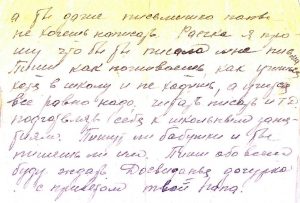 а ты даже письмишко папы
не хочешь написать Раечка я про
шу что бы ты писала мне письма
Пиши как поживаешь как учишься
хотя в школу и не ходишь, а учиться
все равно надо, читать писать и т.д.
подготавливать себя к школьным заня
тиям. Пишут ли бабушки и ты
пишешь ли им. Пиши обо всем
буду ждать Досвиданье дочурка
с приветом твой папа.